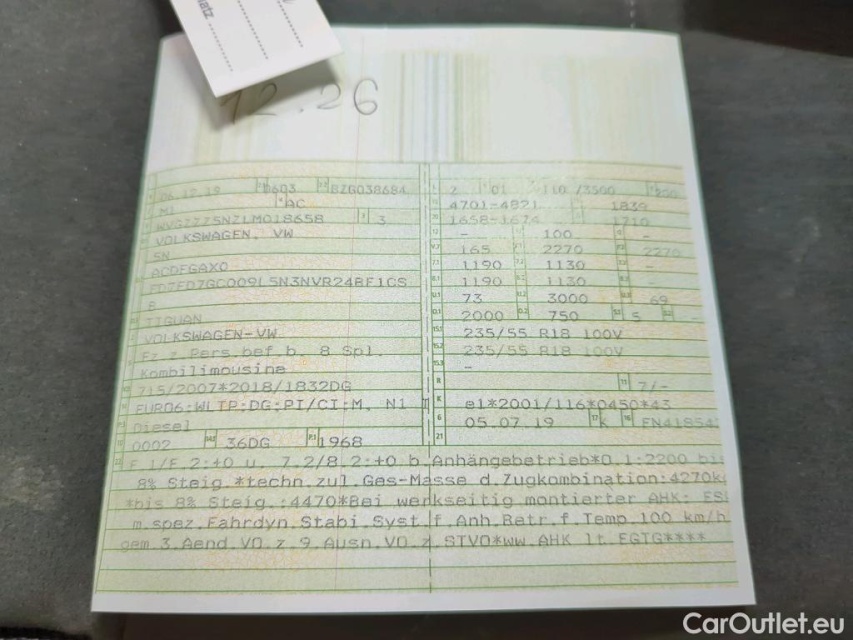 atz
12.26
06.12.19 0603 BZG038684 2 01 110 /3500 200
M1 AC 4701-4821 1839
WVGZZZ5NZLM018658 3 1658-1674 1710
VOLKSWAGEN, VW - 100 -
5N 165 2270 2270
ACDFGAX0 1190 1130 -
1190 1130 -
B 73 3000 69
TIGUAN 2000 750 5 -
VOLKSWAGEN-VW 235/55 R18 100V
Fz.z.Pers.bef.b. 8 Spl. 235/55 R18 100V
Kombilimousine -
715/2007*2018/1832DG 7/-
EURO6;WLTP;DG;PI/CI;M, N1 I e1*2001/116*0450*43
Diesel 05.07.19 K FN41854
0002 36DG P.1 1968 21
F.1/F.2:+0 u. 7.2/8.2:+0 b.Anhängebetrieb*O.1:2200 bis
8% Steig.*techn.zul.Ges-Masse d.Zugkombination:4270kg
*bis 8% Steig.:4470*Bei werkseitig montierter AHK:
m.spez.Fahrdyn.Stabi.Syst.f.Anh.Betr.f.Temp.100 km/h
gem.3.Aend.VO.z.9.Ausn.VO.z.STVO*ww.AHK lt.EGTG****
CarOutlet.eu